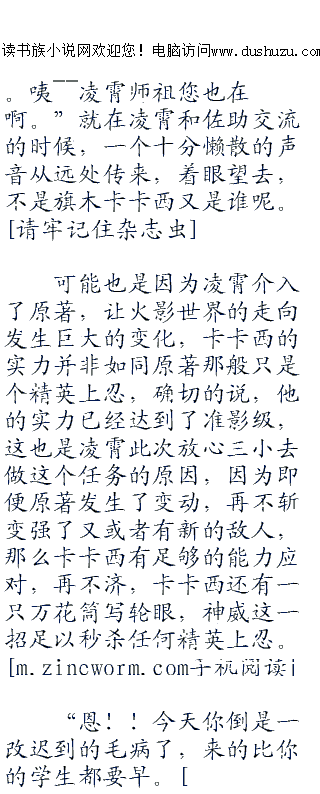 读书族小说网欢迎您！电脑访问www.dushuzu.com
。咦——凌霄师祖您也在
啊。”就在凌霄和佐助交流
的时候，一个十分懒散的声
音从远处传来，着眼望去，
不是旗木卡卡西又是谁呢。
[请牢记住杂志虫]
可能也是因为凌霄介入
了原著，让火影世界的走向
发生巨大的变化，卡卡西的
实力并非如同原著那般只是
个精英上忍，确切的说，他
的实力已经达到了准影级，
这也是凌霄此次放心三小去
做这个任务的原因，因为即
便原著发生了变动，再不斩
变强了又或者有新的敌人，
那么卡卡西有足够的能力应
对，再不济，卡卡西还有一
只万花筒写轮眼，神威这一
招足以秒杀任何精英上忍。
[m.zincworm.com手机阅读i
“恩！！今天你倒是一
改迟到的毛病了，来的比你
的学生都要早。[